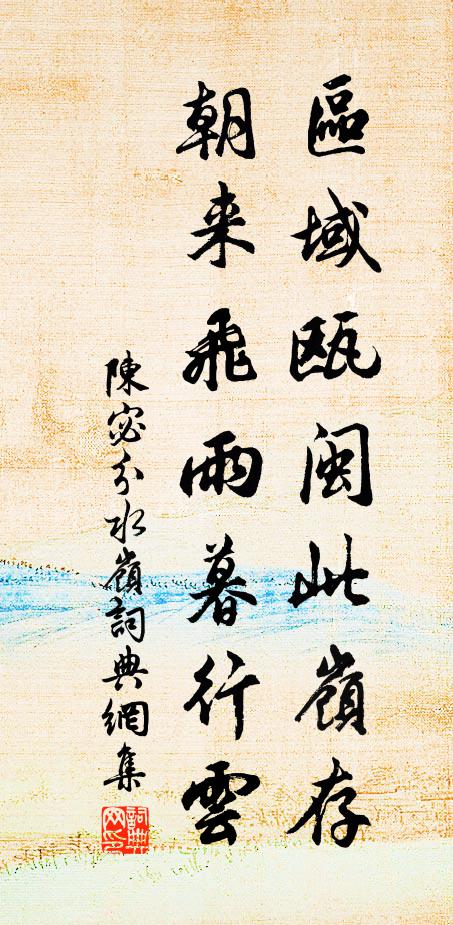 區域瓯閩此嶺存
朝来飛雨暮行雲
陳宓分水嶺詞典網集
詞典网印